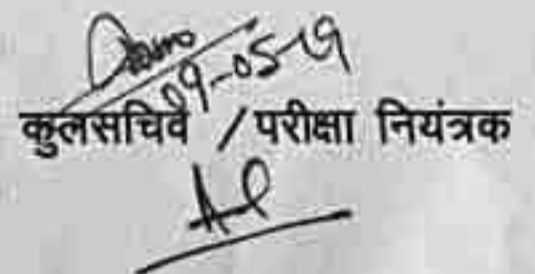 09-05-19
कुलसचिव / परीक्षा नियंत्रक